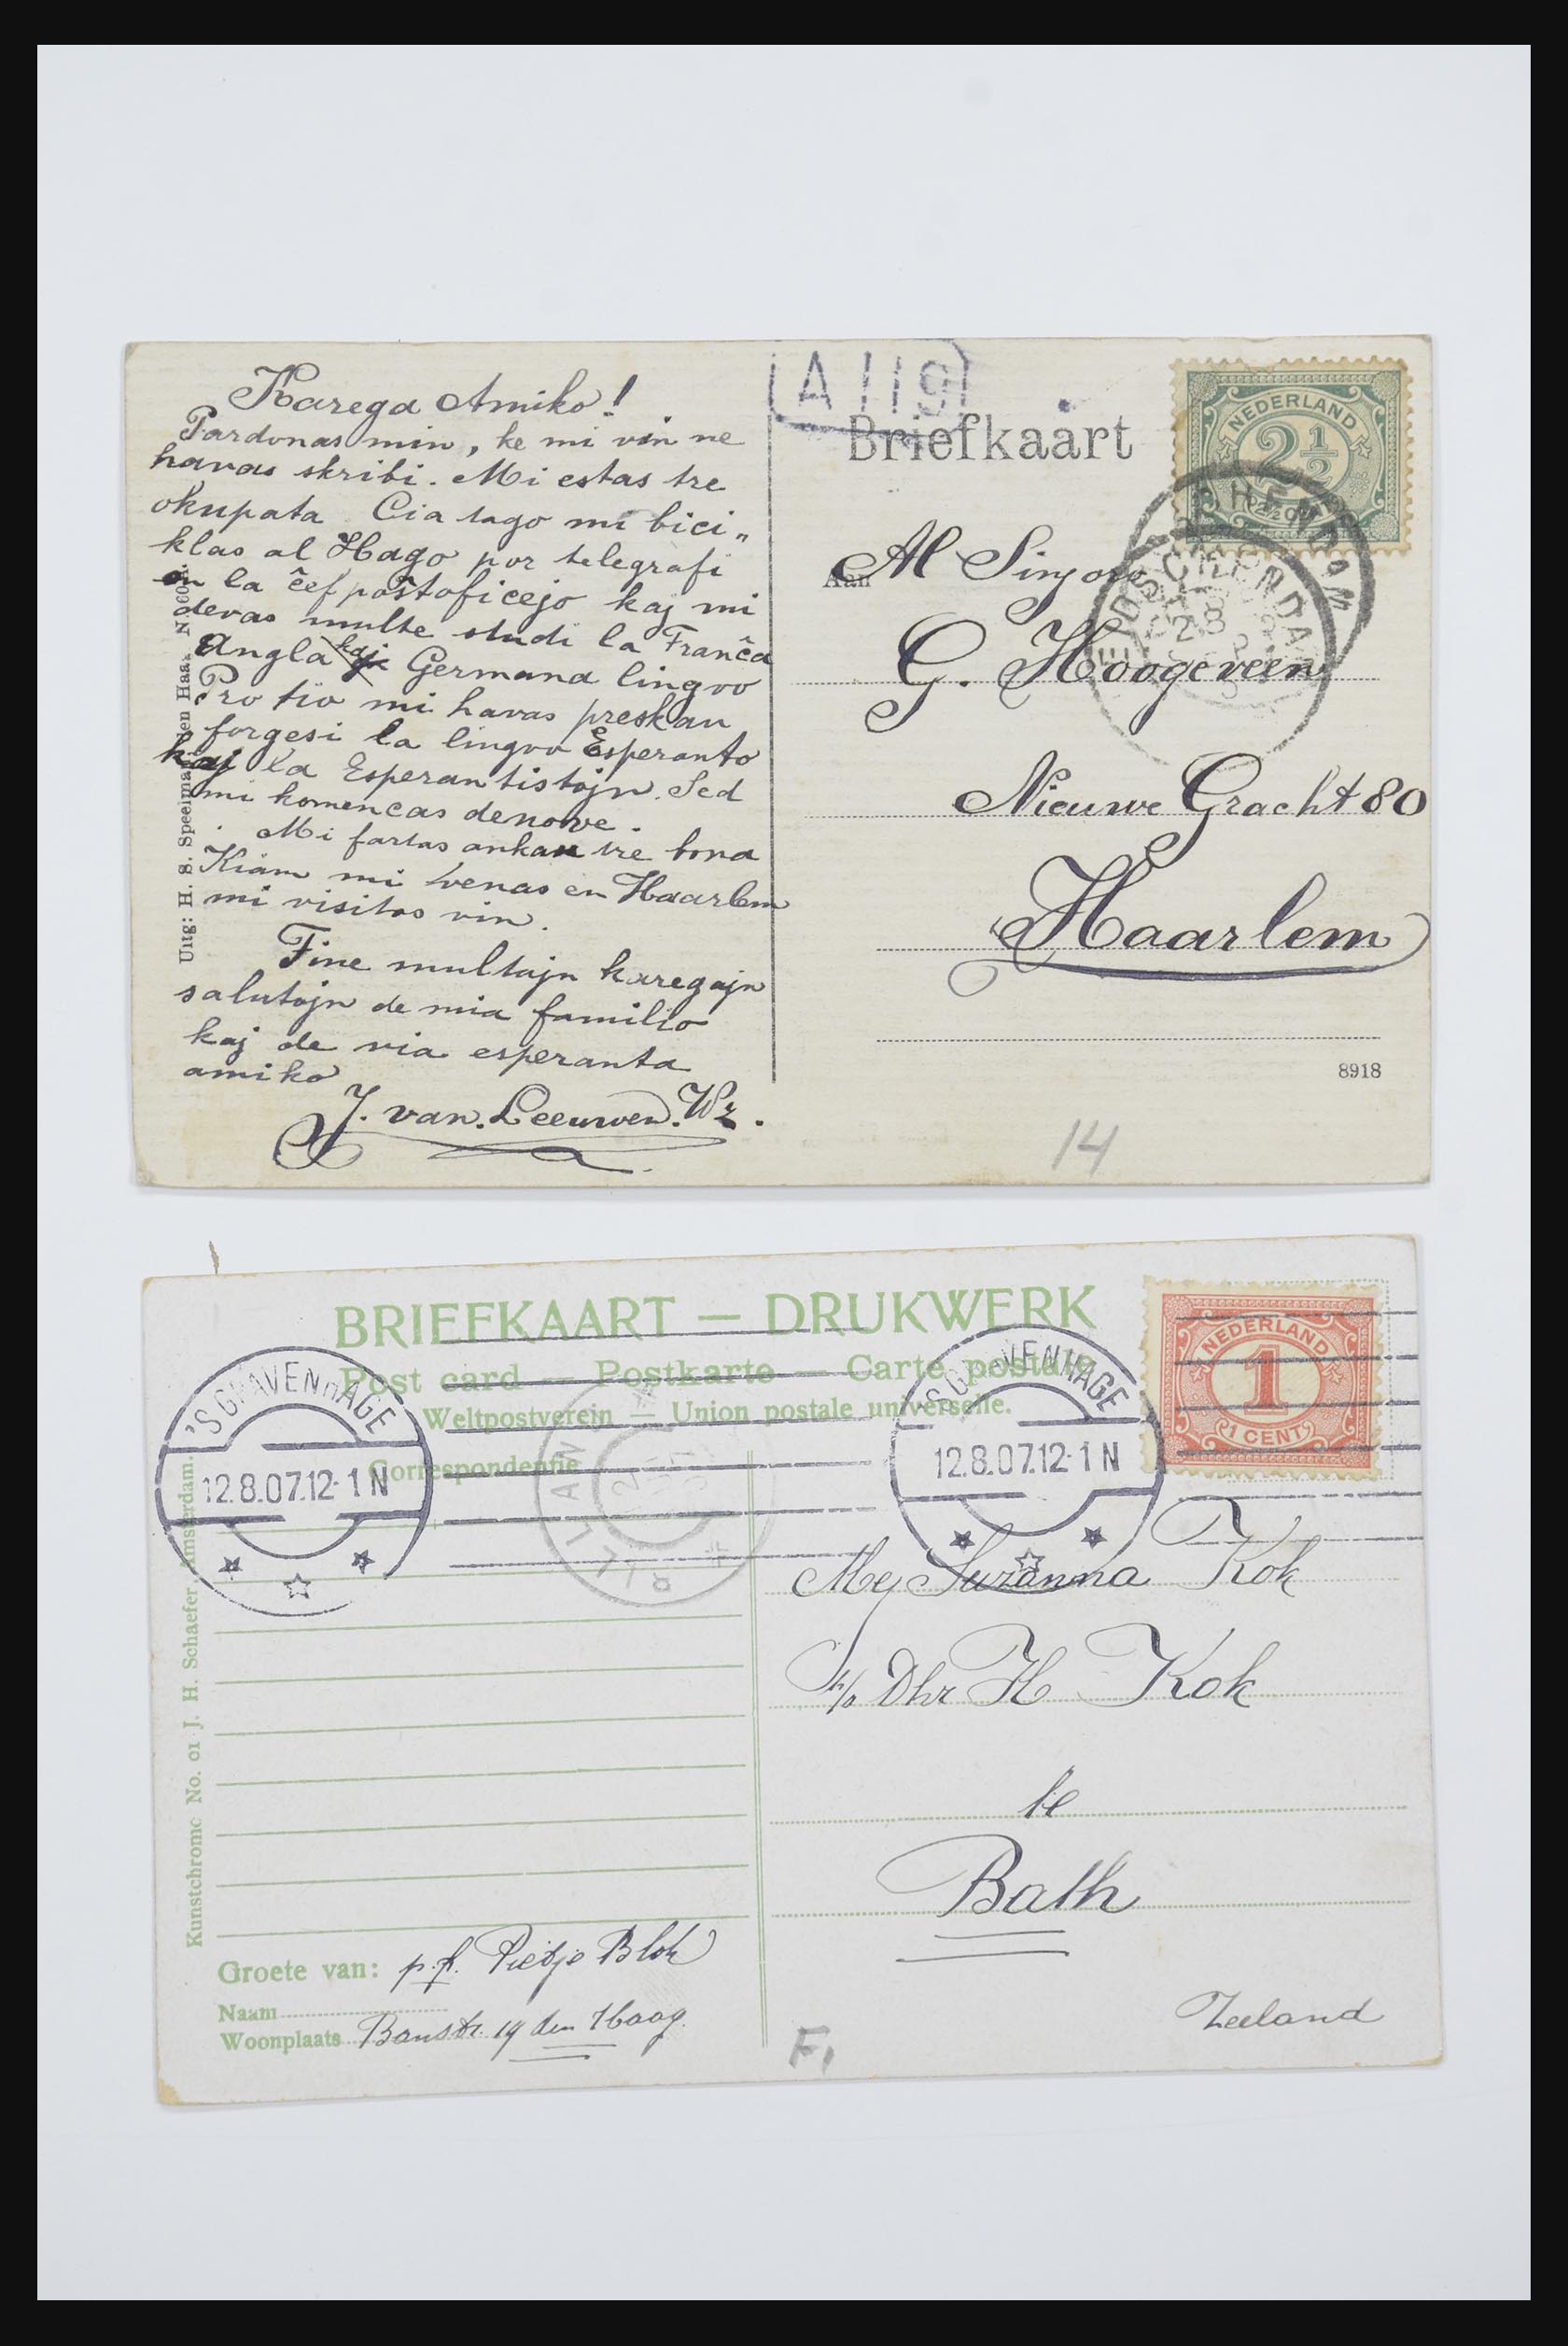 Karega Amiko!
Pardonas min, ke mi vin ne
havas skribi. Mi estas tre
okupata Cia tago mi bici„
klas al Hago por telegrafi
en la ĉef poŝtoficejo kaj mi
devas multe studi la Franĉa
Angla kaj Germana lingvo
Pro tio mi havas preskau
forgesi la lingvo Esperanto
kaj la Esperantistojn. Sed
mi komencas denove.
Mi fartas ankau tre bona
Kiam mi venas en Haarlem
mi visitas vin.
Fine multajn karegajn
salutojn de mia familio
kaj de via esperanta
amiko
J. van Leeuwen. Wz.
Uitg: H. S. Speelman, den Haag. No. 60
A 119
Briefkaart
NEDERLAND
2½
Aan
Al Sinjoro
G. Hoogeveen
Nieuwe Gracht 80
Haarlem
8918
14
BRIEFKAART — DRUKWERK
Post card — Postkarte — Carte postale
Weltpostverein — Union postale universelle.
Correspondentie
'S GRAVENHAGE
12.8.07.12-1 N
'S GRAVENHAGE
12.8.07.12-1 N
RILLAND
NEDERLAND
1
1 CENT
Mej Suzanna Kok
p/a Dhr H Kok
te
Bath
Zeeland
Kunstchromo No. 01 J. H. Schaefer, Amsterdam.
Groete van: p.f. Pietje Blok
Naam
Woonplaats Banstr. 19 den Haag.
F1